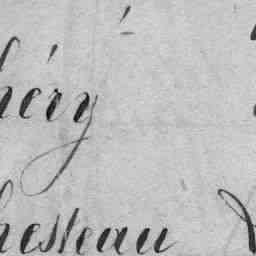 héry
hesteau